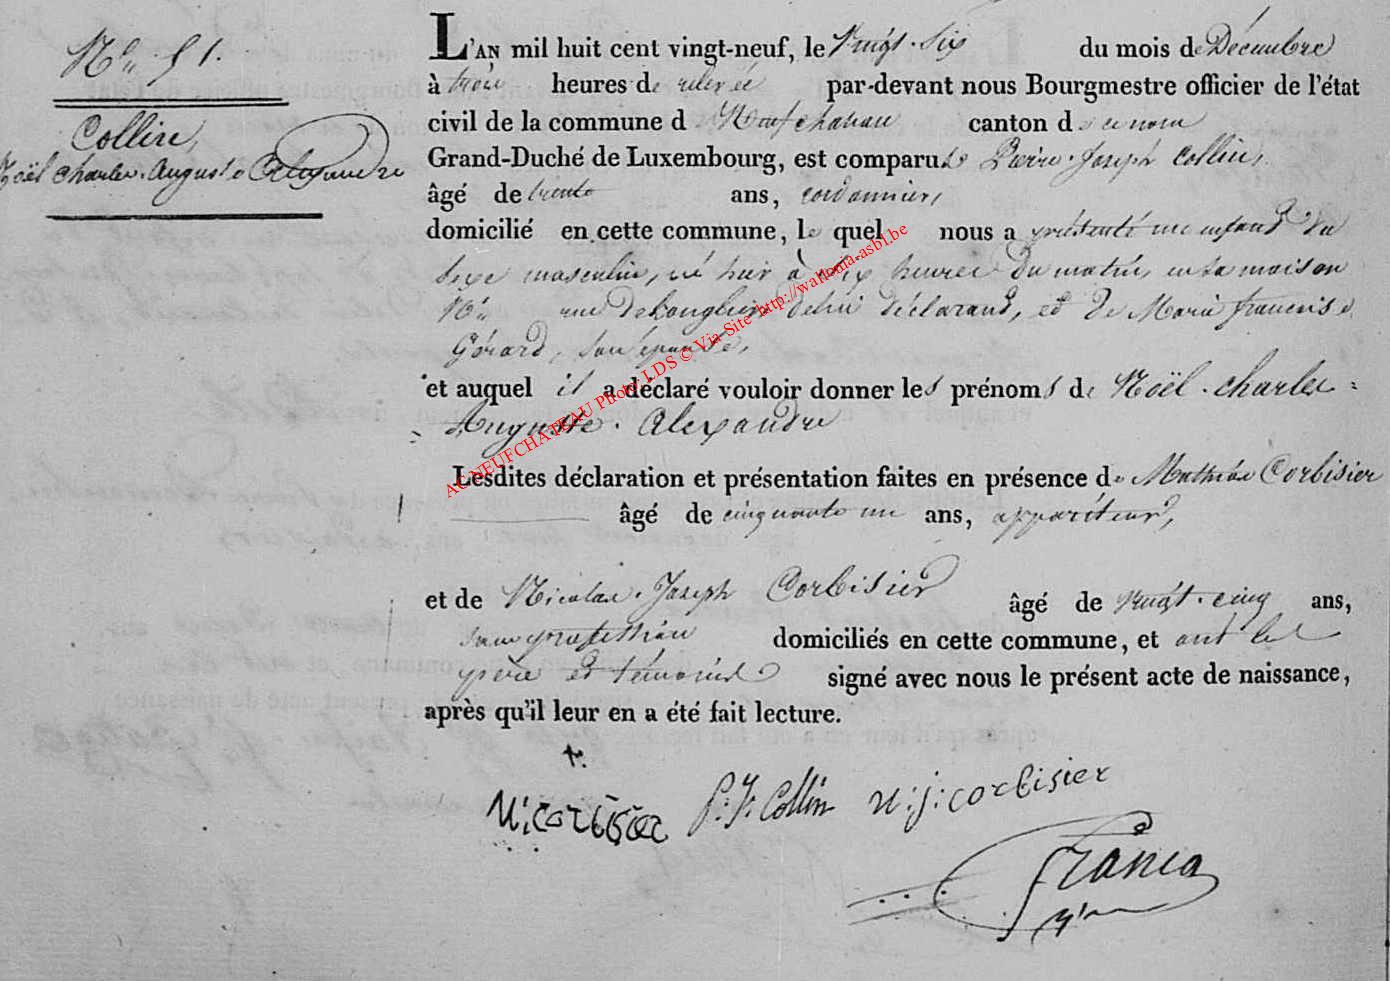 N.° 51.
Collin,
Noël Charles Auguste Alexandre
L'AN mil huit cent vingt-neuf, le Vingt-Six du mois de Décembre
à trois heures de relevée par-devant nous Bourgmestre officier de l'état
civil de la commune de Neufchateau canton de ce nom
Grand-Duché de Luxembourg, est comparu le Pierre-Joseph Collin,
âgé de trente ans, cordonnier,
domicilié en cette commune, le quel nous a présenté un enfant du
sexe masculin, né hier à dix heures du matin, en sa maison
N.° rue de Longlier, de lui déclarant, et de Marie françoise
Gérard, son épouse,
et auquel il a déclaré vouloir donner les prénoms de Noël-Charles=
=Auguste-Alexandre
Lesdites déclaration et présentation faites en présence de Mathieu Corbisier
âgé de cinquante un ans, appariteur,
et de Nicolas-Joseph Corbisier âgé de vingt-cinq ans,
sans profession domiciliés en cette commune, et ont les
père et témoins signé avec nous le présent acte de naissance,
après qu'il leur en a été fait lecture.
M: corbisier P: J: Collin N: j: corbisier
AC NEUFCHATEAU Photo LDS © Via Site http://wallonia-asbl.be